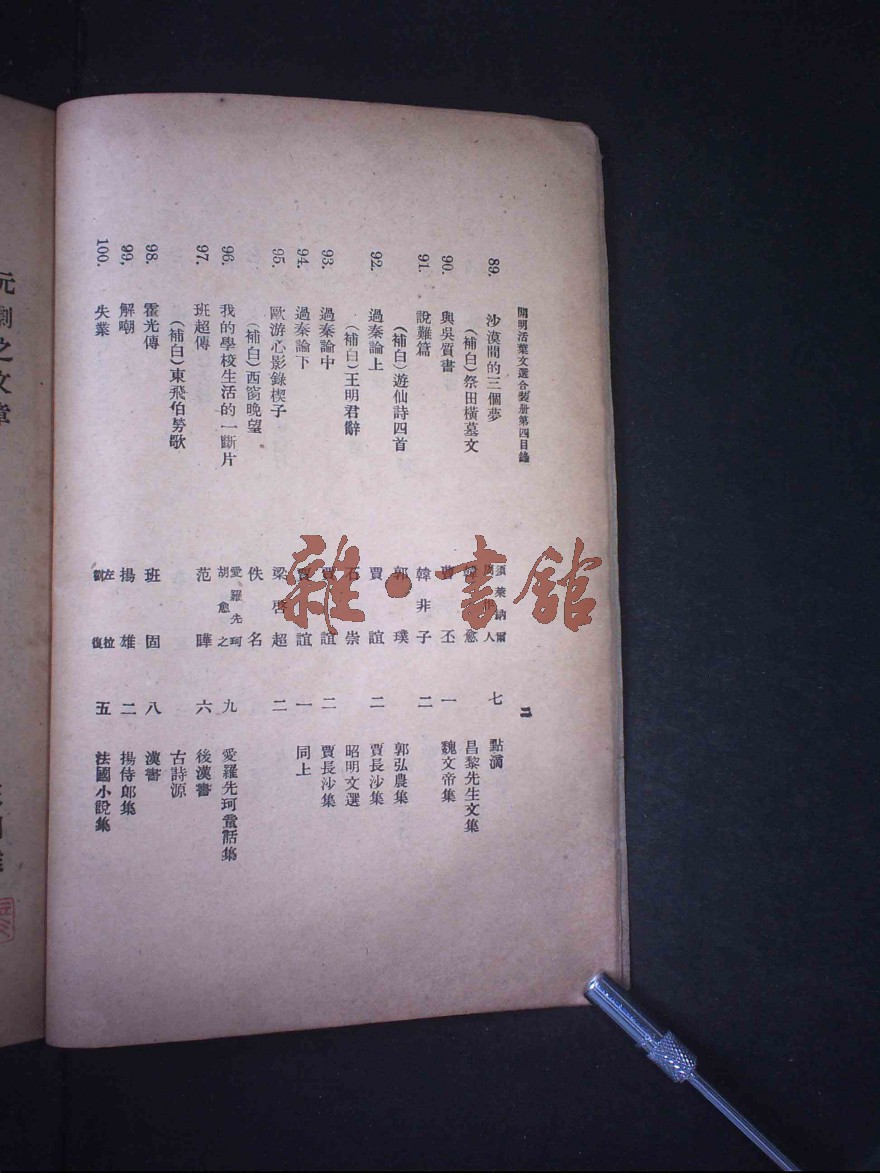 開明活葉文選合裝册第四目錄 二
89. 沙漠間的三個夢 須萊納爾 周作人 七 點滴
(補白)祭田橫墓文 韓愈 昌黎先生文集
90. 與吳質書 曹丕 一 魏文帝集
91. 說難篇 韓非子 二
(補白)遊仙詩四首 郭璞 郭弘農集
92. 過秦論上 賈誼 二 賈長沙集
(補白)王明君辭 石崇 昭明文選
93. 過秦論中 賈誼 二 賈長沙集
94. 過秦論下 賈誼 一 同上
95. 歐游心影錄楔子 梁啓超 二
(補白)西窗晚望 佚名
96. 我的學校生活的一斷片 愛羅先珂 胡愈之 九 愛羅先珂童話集
97. 班超傳 范曄 六 後漢書
(補白)東飛伯勞歌 古詩源
98. 霍光傳 班固 八 漢書
99. 解嘲 揚雄 二 揚侍郎集
100. 失業 左拉 劉復 五 法國小說集
元劇之文章
雜·書館